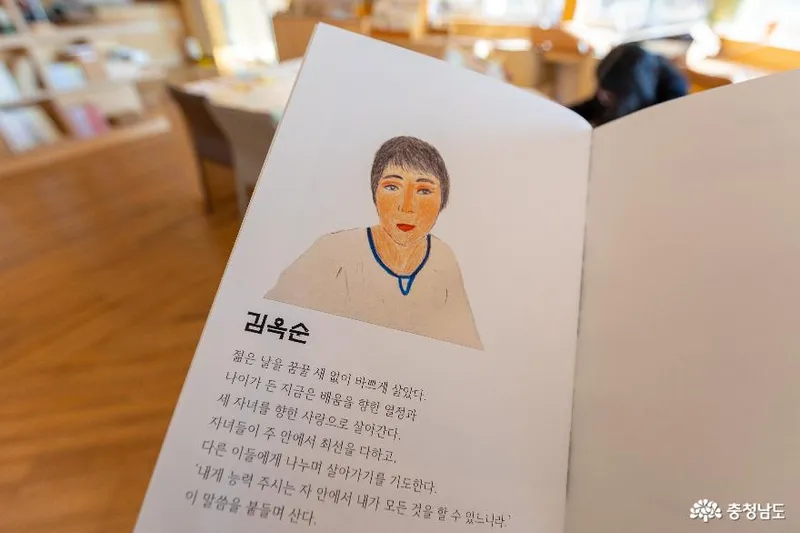 김옥순
젊은 날을 꿈꿀 새 없이 바쁘게 살았다.
나이가 든 지금은 배움을 향한 열정과
세 자녀를 향한 사랑으로 살아간다.
자녀들이 주 안에서 최선을 다하고,
다른 이들에게 나누며 살아가기를 기도한다.
'내게 능력 주시는 자 안에서 내가 모든 것을 할 수 있느니라.'
이 말씀을 붙들며 산다.
충청남도